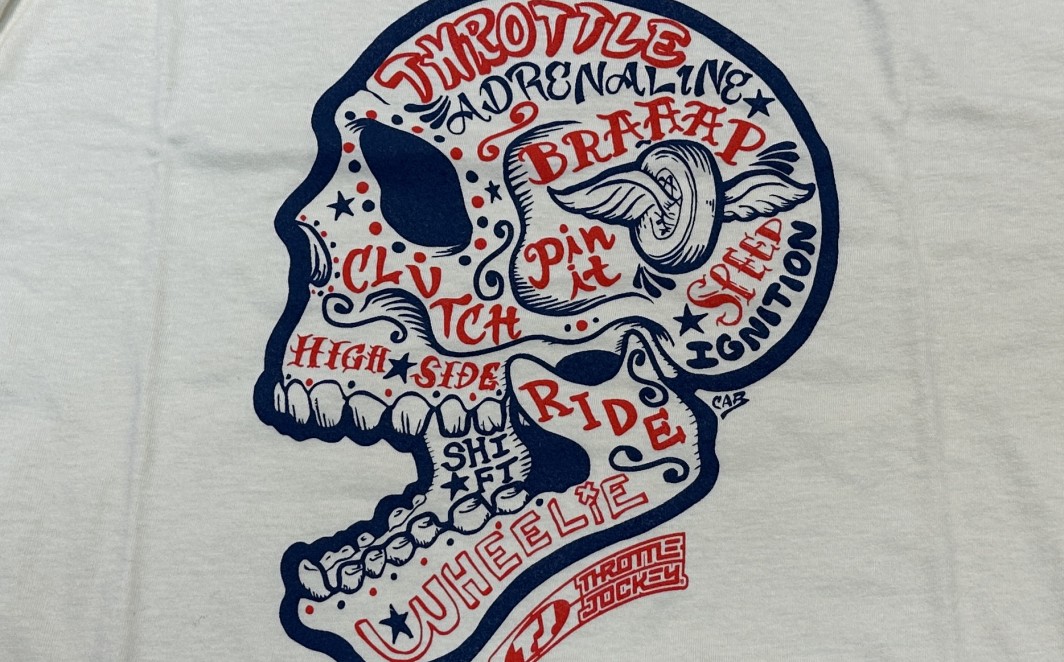 THROTTLE
ADRENALINE
BRAAAP
PIN
IT
SPEED
IGNITION
CLU
TCH
HIGH SIDE
RIDE
CAB
SHI
FT
WHEELIE
THROTTLE
JOCKEY
TJ